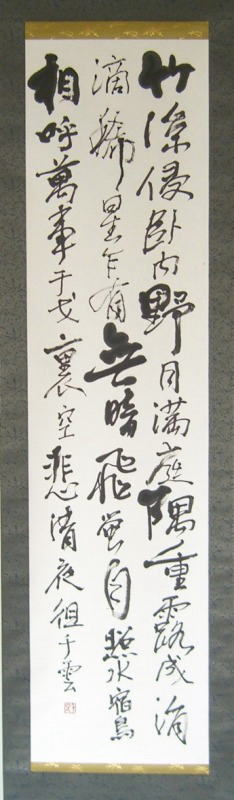 竹涼侵卧内野月満庭隅重露成涓
滴稀々星乍有無暗飛蛍自照水宿鳥
相呼萬事干戈裏空悲清夜徂子雲